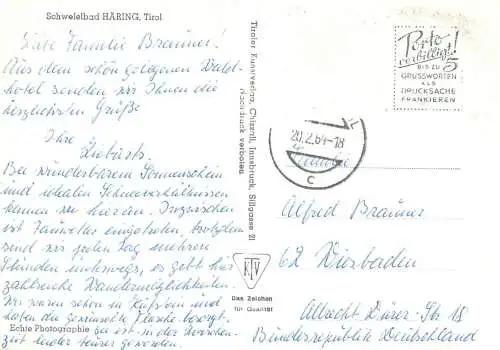 Schwefelbad HÄRING, Tirol
Liebe Familie Brauner!
Aus dem schön gelegenen Wald-
hotel senden wir Ihnen die
herzlichsten Grüße
Ihre
Bei wunderbarem Sonnenschein
und idealen Schneeverhältnissen
kamen wir hier an. Inzwischen
ist Tauwetter eingetreten, trotzdem
sind wir jeden Tag mehrere
Stunden unterwegs, es gibt hier
zahlreiche Wandermöglichkeiten.
Wir waren schon in Kufstein und
haben die gewünschte Flasche besorgt.
Echte Photographie
ist in der Zwischen-
zeit leider teurer geworden.
Tiroler Kunstverlag, Chizzali, Innsbruck, Sillgasse 21
Nachdruck verboten
KTV
Das Zeichen
für Qualität
Porto
verbilligt!
5
BIS ZU
GRUSSWORTEN
ALS
DRUCKSACHE
FRANKIEREN
20.2.64-18
c
Familie
Alfred Brauner
62 Wiesbaden
Albrecht Dürer-Str. 18
Bundesrepublik Deutschland